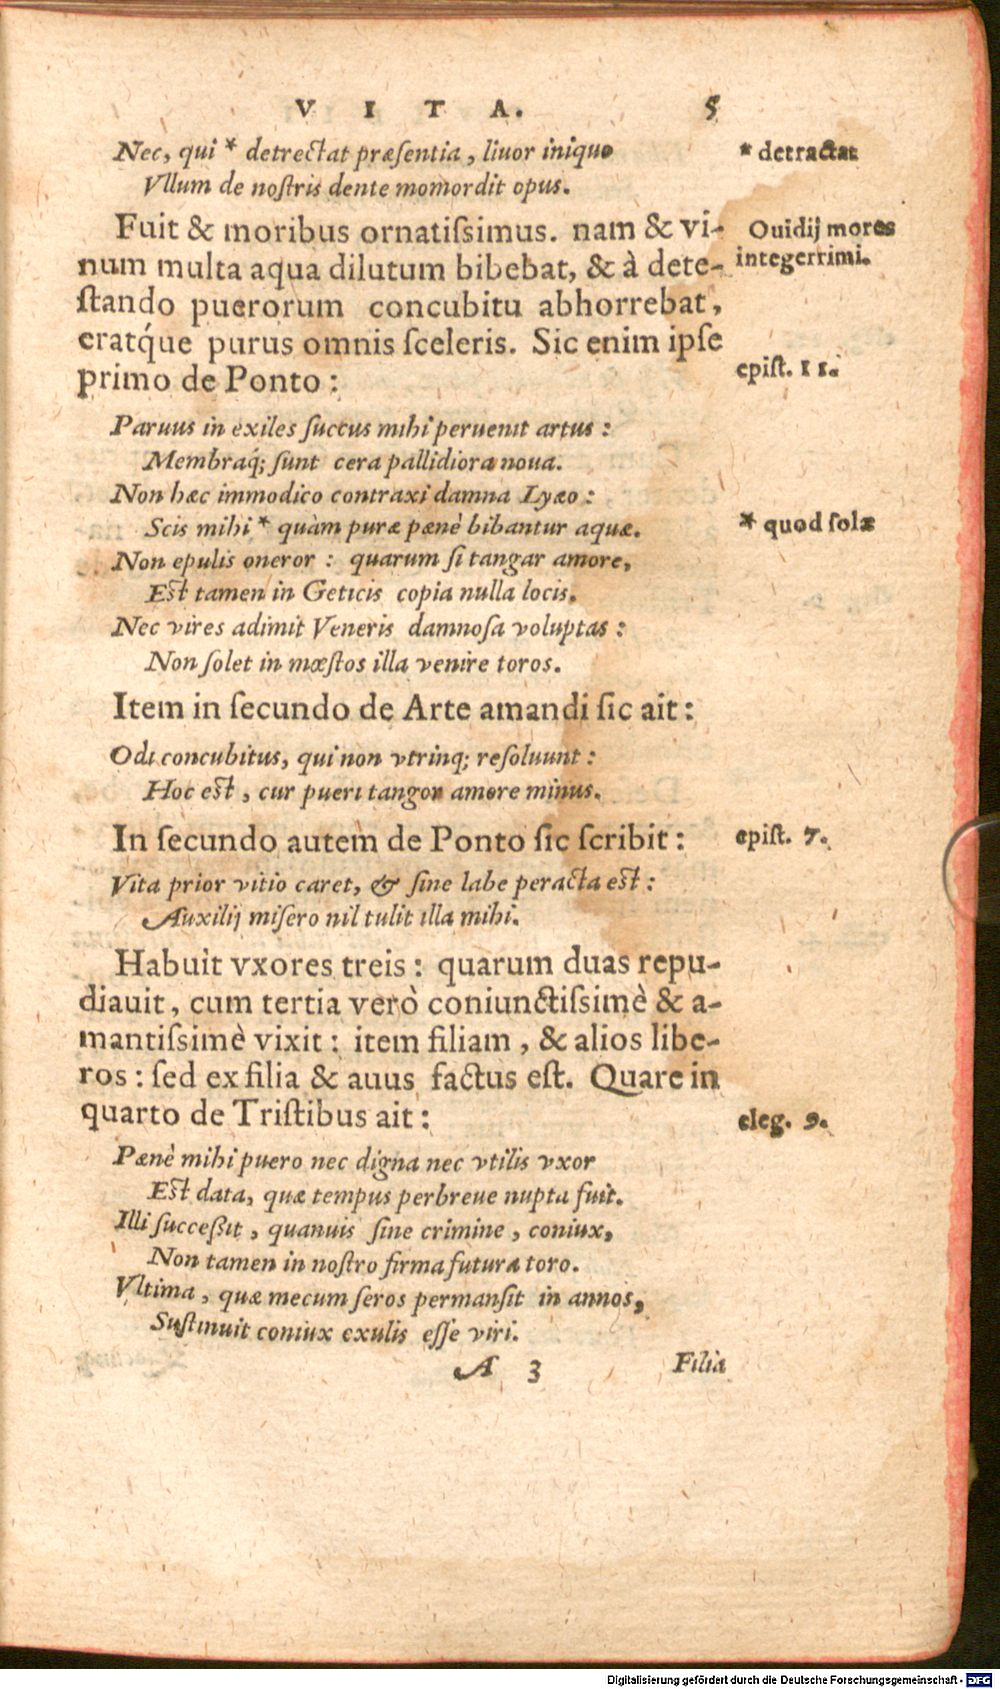 VITA. 5
Nec, qui * detrectat præſentia, liuor iniquo
* detractat
Vllum de noſtris dente momordit opus.
Fuit & moribus ornatiſsimus. nam & vi-
Ouidij mores
num multa aqua dilutum bibebat, & à dete-
integerrimi.
ſtando puerorum concubitu abhorrebat,
eratq́ue purus omnis ſceleris. Sic enim ipſe
primo de Ponto:
epiſt. 11.
Paruus in exiles ſuccus mihi peruenit artus:
Membraq́; ſunt cera pallidiora noua.
Non hæc immodico contraxi damna Lyæo:
Scis mihi * quàm puræ pænè bibantur aquæ.
* quod ſolæ
Non epulis oneror: quarum ſi tangar amore,
Eſt tamen in Geticis copia nulla locis.
Nec vires adimit Veneris damnoſa voluptas:
Non ſolet in mæſtos illa venire toros.
Item in ſecundo de Arte amandi ſic ait:
Odi concubitus, qui non vtrinq; reſoluunt:
Hoc eſt, cur pueri tangor amore minus.
In ſecundo autem de Ponto ſic ſcribit:
epiſt. 7.
Vita prior vitio caret, & ſine labe peracta eſt:
Auxilij miſero nil tulit illa mihi.
Habuit vxores treis: quarum duas repu-
diauit, cum tertia verò coniunctiſsimè & a-
mantiſsimè vixit: item filiam, & alios libe-
ros: ſed ex filia & auus factus eſt. Quare in
quarto de Triſtibus ait:
eleg. 9.
Pænè mihi puero nec digna nec vtilis vxor
Eſt data, quæ tempus perbreue nupta fuit.
Illi ſucceßit, quanuis ſine crimine, coniux,
Non tamen in noſtro firma futura toro.
Vltima, quæ mecum ſeros permanſit in annos,
Suſtinuit coniux exulis eſſe viri.
A 3 Filia
Digitalisierung gefördert durch die Deutsche Forschungsgemeinschaft - DFG